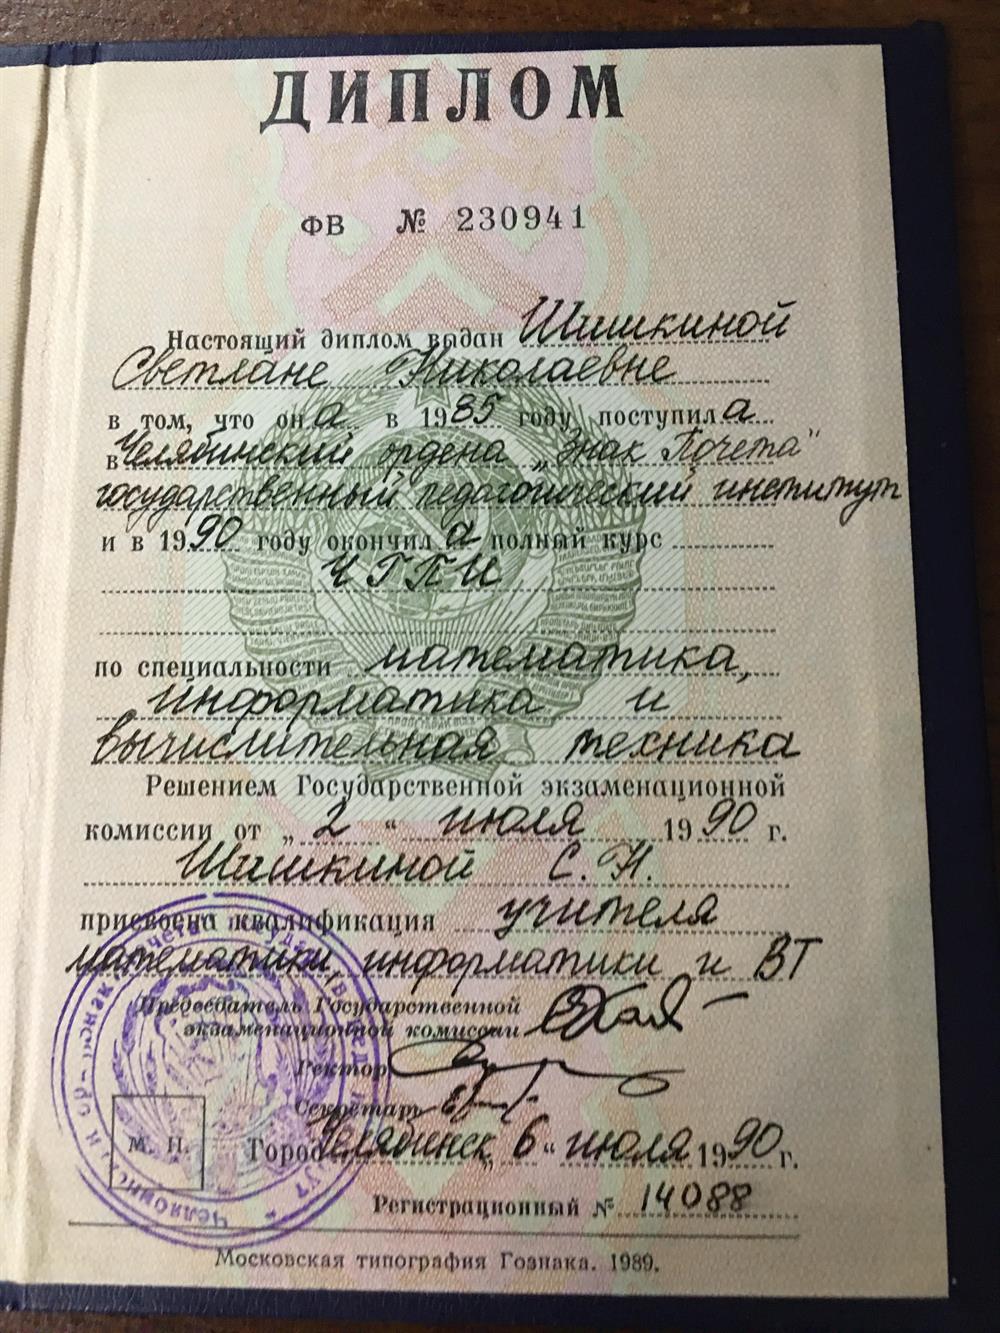 ДИПЛОМ
ФВ № 230941
Настоящий диплом выдан Шишкиной
Светлане Николаевне
в том, что она в 1985 году поступила
в Челябинский ордена „Знак Почета"
государственный педагогический институт
и в 1990 году окончила полный курс
ЧГПИ
по специальности математика,
информатика и
вычислительная техника
Решением Государственной экзаменационной
комиссии от „2“ июля 1990 г.
Шишкиной С. Н.
присвоена квалификация учителя
математики, информатики и ВТ
Председатель Государственной
экзаменационной комиссии
Ректор
Секретарь
М. П.
Город Челябинск „6“ июля 1990 г.
Регистрационный № 14088
Московская типография Гознака. 1989.